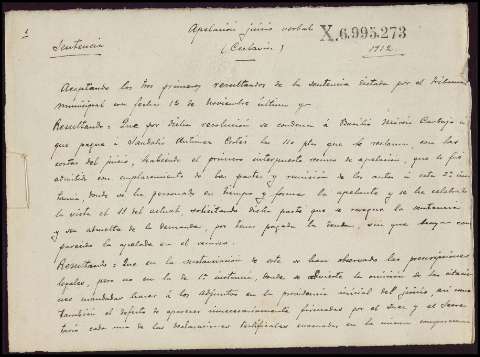 1
Apelación juicio verbal X.6.995.273
Sentencia (Certavin) 1912.
Aceptando los tres primeros resultandos de la sentencia dictada por el Tribunal
municipal con fecha 12 de Noviembre último y
Resultando: Que por dicha resolución se condena á Basilio Carbajo á
que pague á Sandalio Antúnez Cortés las 110 ptas que le reclama, con las
costas del juicio, habiendo el primero interpuesto recurso de apelación, que le fué
admitido con emplazamiento de las partes y remisión de los autos á esta 2ª ins-
tancia, donde se ha personado en tiempo y forma la apelante y se ha celebrado
la vista el 11 del actual, solicitando dicha parte que se revoque la sentencia
y sea absuelta de la demanda, por haber pagado la deuda, sin que haya com-
parecido la apelada en el mismo.
Resultando: Que en la sustanciación de este se han observado las prescripciones
legales, pero no en la de 1ª instancia, donde se advierte la omisión de las citacio-
nes mandadas hacer á los adjuntos en la providencia inicial del juicio, así como
también el defecto de aparecer innecesariamente firmadas por el Juez y el Secre-
tario cada una de las declaraciones testificales evacuadas en la misma comparecencia